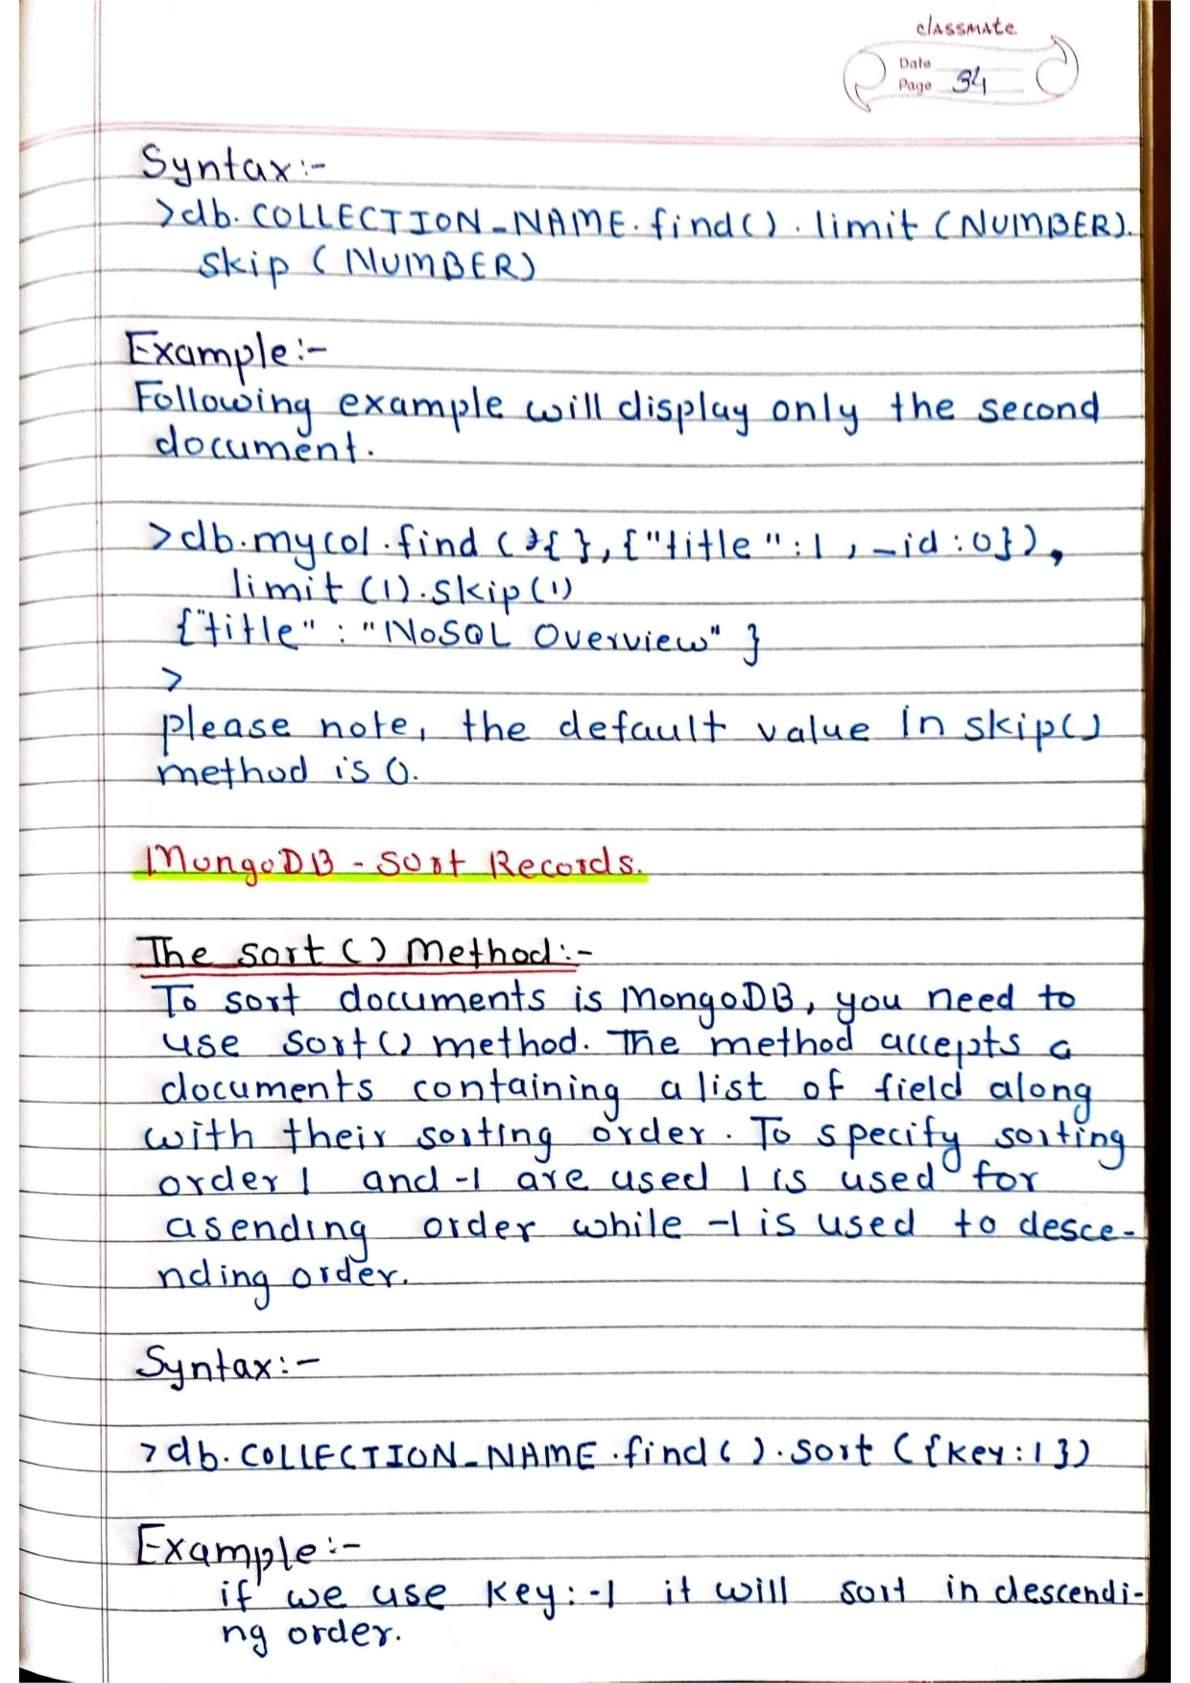 classmate
Date
Page 34
Syntax:-
>db.COLLECTION_NAME.find().limit(NUMBER).
skip (NUMBER)
Example:-
Following example will display only the second
document.
>db.mycol.find({},{"title":1,_id:0}).
limit(1).skip(1)
{"title" : "NoSQL Overview" }
>
please note, the default value in skip()
method is 0.
MongoDB - Sort Records.
The Sort () Method:-
To sort documents is MongoDB, you need to
use sort() method. The method accepts a
documents containing a list of field along
with their sorting order. To specify sorting
order 1 and -1 are used 1 is used for
asending order while -1 is used to desce-
nding order.
Syntax:-
>db.COLLECTION_NAME.find().sort({key:1})
Example:-
if we use key:-1 it will sort in descendi-
ng order.